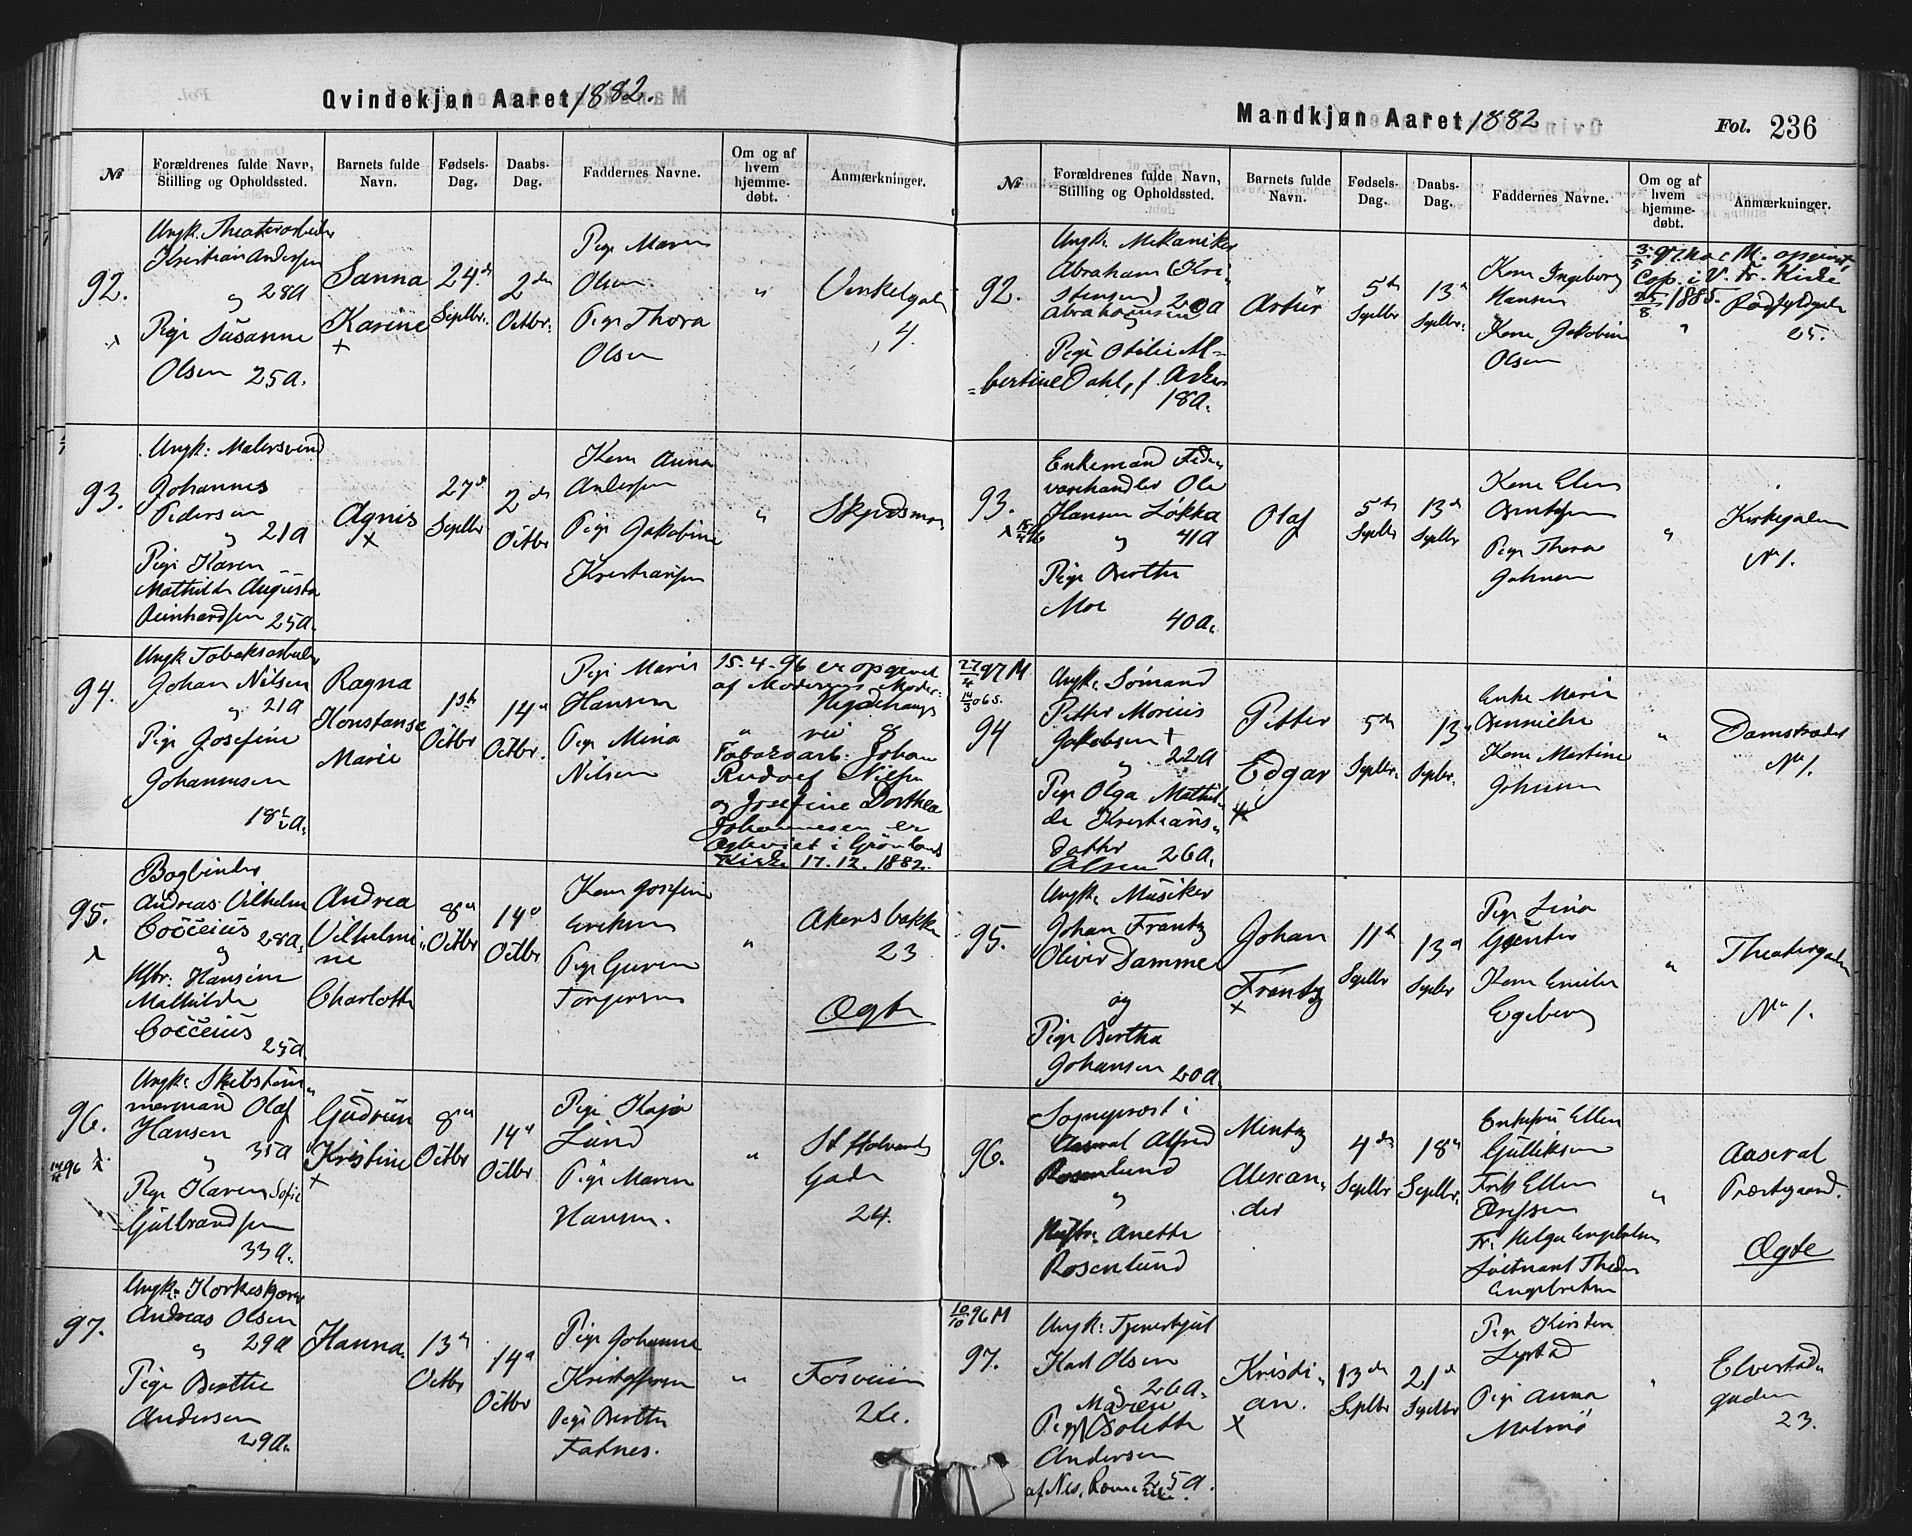 Qvindekjøn Aaret 1882.
№
Forældrenes fulde Navn,
Stilling og Opholdssted.
Barnets fulde
Navn.
Fødsels-
Dag.
Daabs-
Dag.
Faddernes Navne.
Om og af
hvem
hjemme-
døbt.
Anmærkninger.
92.
Ungk. Theaterarbeider
Kristian Andersen
28a
Pige Susanne
Olsen 25a.
Sanna
Karine
24de
Septbr.
2den
Octbr.
Pige Maren
Olsen
Pige Thora
Olsen
"
Vinkelgaden
4.
93.
Ungk: Malersvend
Johannes
Pedersen
21a
Pige Karen
Mathilde Augusta
Reinhardsen 25a.
Agnis
27de
Septbr
2den
Octbr
Kone Anna
Andersen
Pige Jakobine
Kristiansen
"
94.
Ungk Tobaksarbeider
Johan Nilsen
21a
Pige Josefine
Johannesen
18½a.
Ragna
Konstanse
Marie
1ste
Octbr.
14de
Octbr.
Pige Marie
Hansen
Pige Mina
Nilsen
15.4.96 er opgivet
af Moderens Moder:
Tobaksarb. Johan
Rudolf Nilsen
og Josefine Dorthea
Johannesen er
Egteviet i Grønlands
Kirke 17.12.1882.
95.
Bogbinder
Andreas Vilhelm
Cocceius 28a.
og
Hstr: Hansine
Mathilde
Cocceius
25a
Andrea
Vilhelmi-
ne
Charlotte
8de
Octbr
14de
Octbr
Kone Josefine
Eriksen
Pige Guren
Torgersen
"
Akersbakken
23
Ægte
96.
Ungk: Skibstøm-
mermand Olaf
Hansen
35a
Pige Karen Sofie
Gulbrandsen
33a.
Gudrun
Kristine
8de
Octbr
14de
Octbr
Pige Kaja
Lund
Pige Maren
Hansen.
"
St Halvards
Gade
24.
97.
Ungk: Korkeskjærer
Andreas Olsen
29a
Pige Berthe
Andersen
29a.
Hanna.
13de
Octbr
14de
Octbr
Pige Johanne
Kristoffersen
Pige Berthe
"
Fosveien
Mandkjøn Aaret 1882
Fol. 236
№
Forældrenes fulde Navn,
Stilling og Opholdssted.
Barnets fulde
Navn.
Fødsels-
Dag.
Daabs-
Dag.
Faddernes Navne.
Om og af
hvem
hjemme-
døbt.
Anmærkninger.
92.
Ungk: Mekaniker
Abraham (Kri-
stensen)
Abrahamsen 20a
Pige Otilie Al-
bertine Dahl, f. Aker
18a.
Artur
5te
Septbr
13de
Septbr.
Kone Ingeborg
Hansen
Kone Jakobine
Olsen
Cop. i V. Fr. Kirke
1885.
25.
93.
Enkemand Fede-
varehandler Ole
Hansen Løkka
41a
Pige Berthe
Moe
40a.
Olaf
5te
Septbr
13de
Septbr
Kone Elen
Pige Thora
Johnsen
"
Kirkegaden
No 1.
94
Ungk: Sømand
Petter Morius
Jakobsen
22a
Pige Olga Mathil-
de Kristians-
datter 26a.
Olsen
Petter
Edgar
5te
Septbr.
13de
Septbr.
Enke Marie
Kone Martine
Johnsen
"
Damstrædet
No 1.
95.
Ungk: Musiker
Johan Frantz
Oliver Damme
og
Pige Bertha
Johansen 20a.
Johan
Frantz
11te
Septbr
13de
Septbr
Pige Lina
Kone Emilie
Egeberg
"
Theatergaden
No 1.
96.
Sogneprest i
Aaseral Alfred
Rosenlund
"
Hustr: Anette
Rosenlund
Mentz
Alexan-
der
4de
Septbr
18de
Septbr.
Enkefru Ellen
Gulliksen
Frk Ellen
Fr: Helga Engebretsen
Løitnant Theodor
Engebretsen
"
Aaseral
Præstegaard.
Ægte
10/10 96 M
97.
Ungk: Tjenestkjut
Karl Olsen
26a.
Maren
Pige Isolette
Andersen
af Nes, Romerike 25a.
Kristi-
an.
13de
Septbr
21de
Septbr
Pige Kirsten
Lystad
Pige Anna
Malmø
Elvestad-
gaden
23.